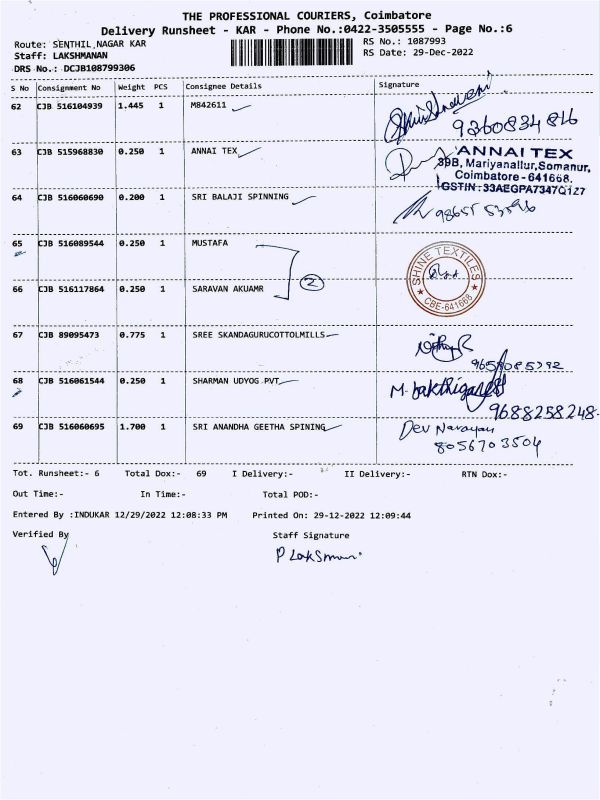 THE PROFESSIONAL COURIERS, Coimbatore
Delivery Runsheet - KAR - Phone No.:0422-3505555 - Page No.:6
Route: SENTHIL NAGAR KAR
RS No.: 1087993
Staff: LAKSHMANAN
RS Date: 29-Dec-2022
DRS No.: DCJB108799306
S No Consignment No Weight PCS Consignee Details Signature
62 CJB 516104939 1.445 1 M842611
9360834816
63 CJB 515968830 0.250 1 ANNAI TEX
ANNAI TEX
39B, Mariyanallur, Somanur,
Coimbatore - 641668.
GSTIN : 33AEGPA7347Q1Z7
64 CJB 516060690 0.200 1 SRI BALAJI SPINNING
65 CJB 516089544 0.250 1 MUSTAFA
2
SHINE TEXTILES
CBE-641668
66 CJB 516117864 0.250 1 SARAVAN AKUAMR
67 CJB 89095473 0.775 1 SREE SKANDAGURUCOTTOLMILLS
9659085392
68 CJB 516061544 0.250 1 SHARMAN UDYOG PVT
9688258248
69 CJB 516060695 1.700 1 SRI ANANDHA GEETHA SPINING
Dev Narayan
8056703504
Tot. Runsheet:- 6 Total Dox:- 69 I Delivery:- II Delivery:- RTN Dox:-
Out Time:- In Time:- Total POD:-
Entered By :INDUKAR 12/29/2022 12:08:33 PM Printed On: 29-12-2022 12:09:44
Verified By Staff Signature